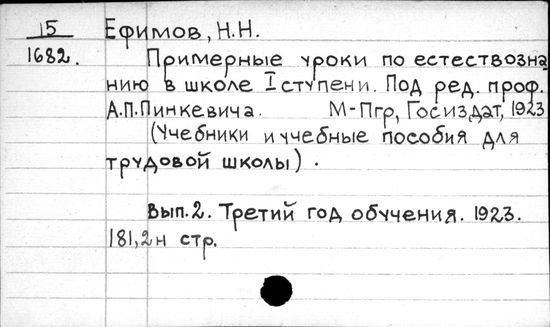 15 Ефимов, Н.Н.
1682. Примерные уроки по естествозна
нию в школе I ступени. Под ред. проф.
А.П.Пинкевича. М-Пгр, Госиздат, 1923
(Учебники и учебные пособия для
трудовой школы).
Вып.2. Третий год обучения. 1923.
181,2н стр.